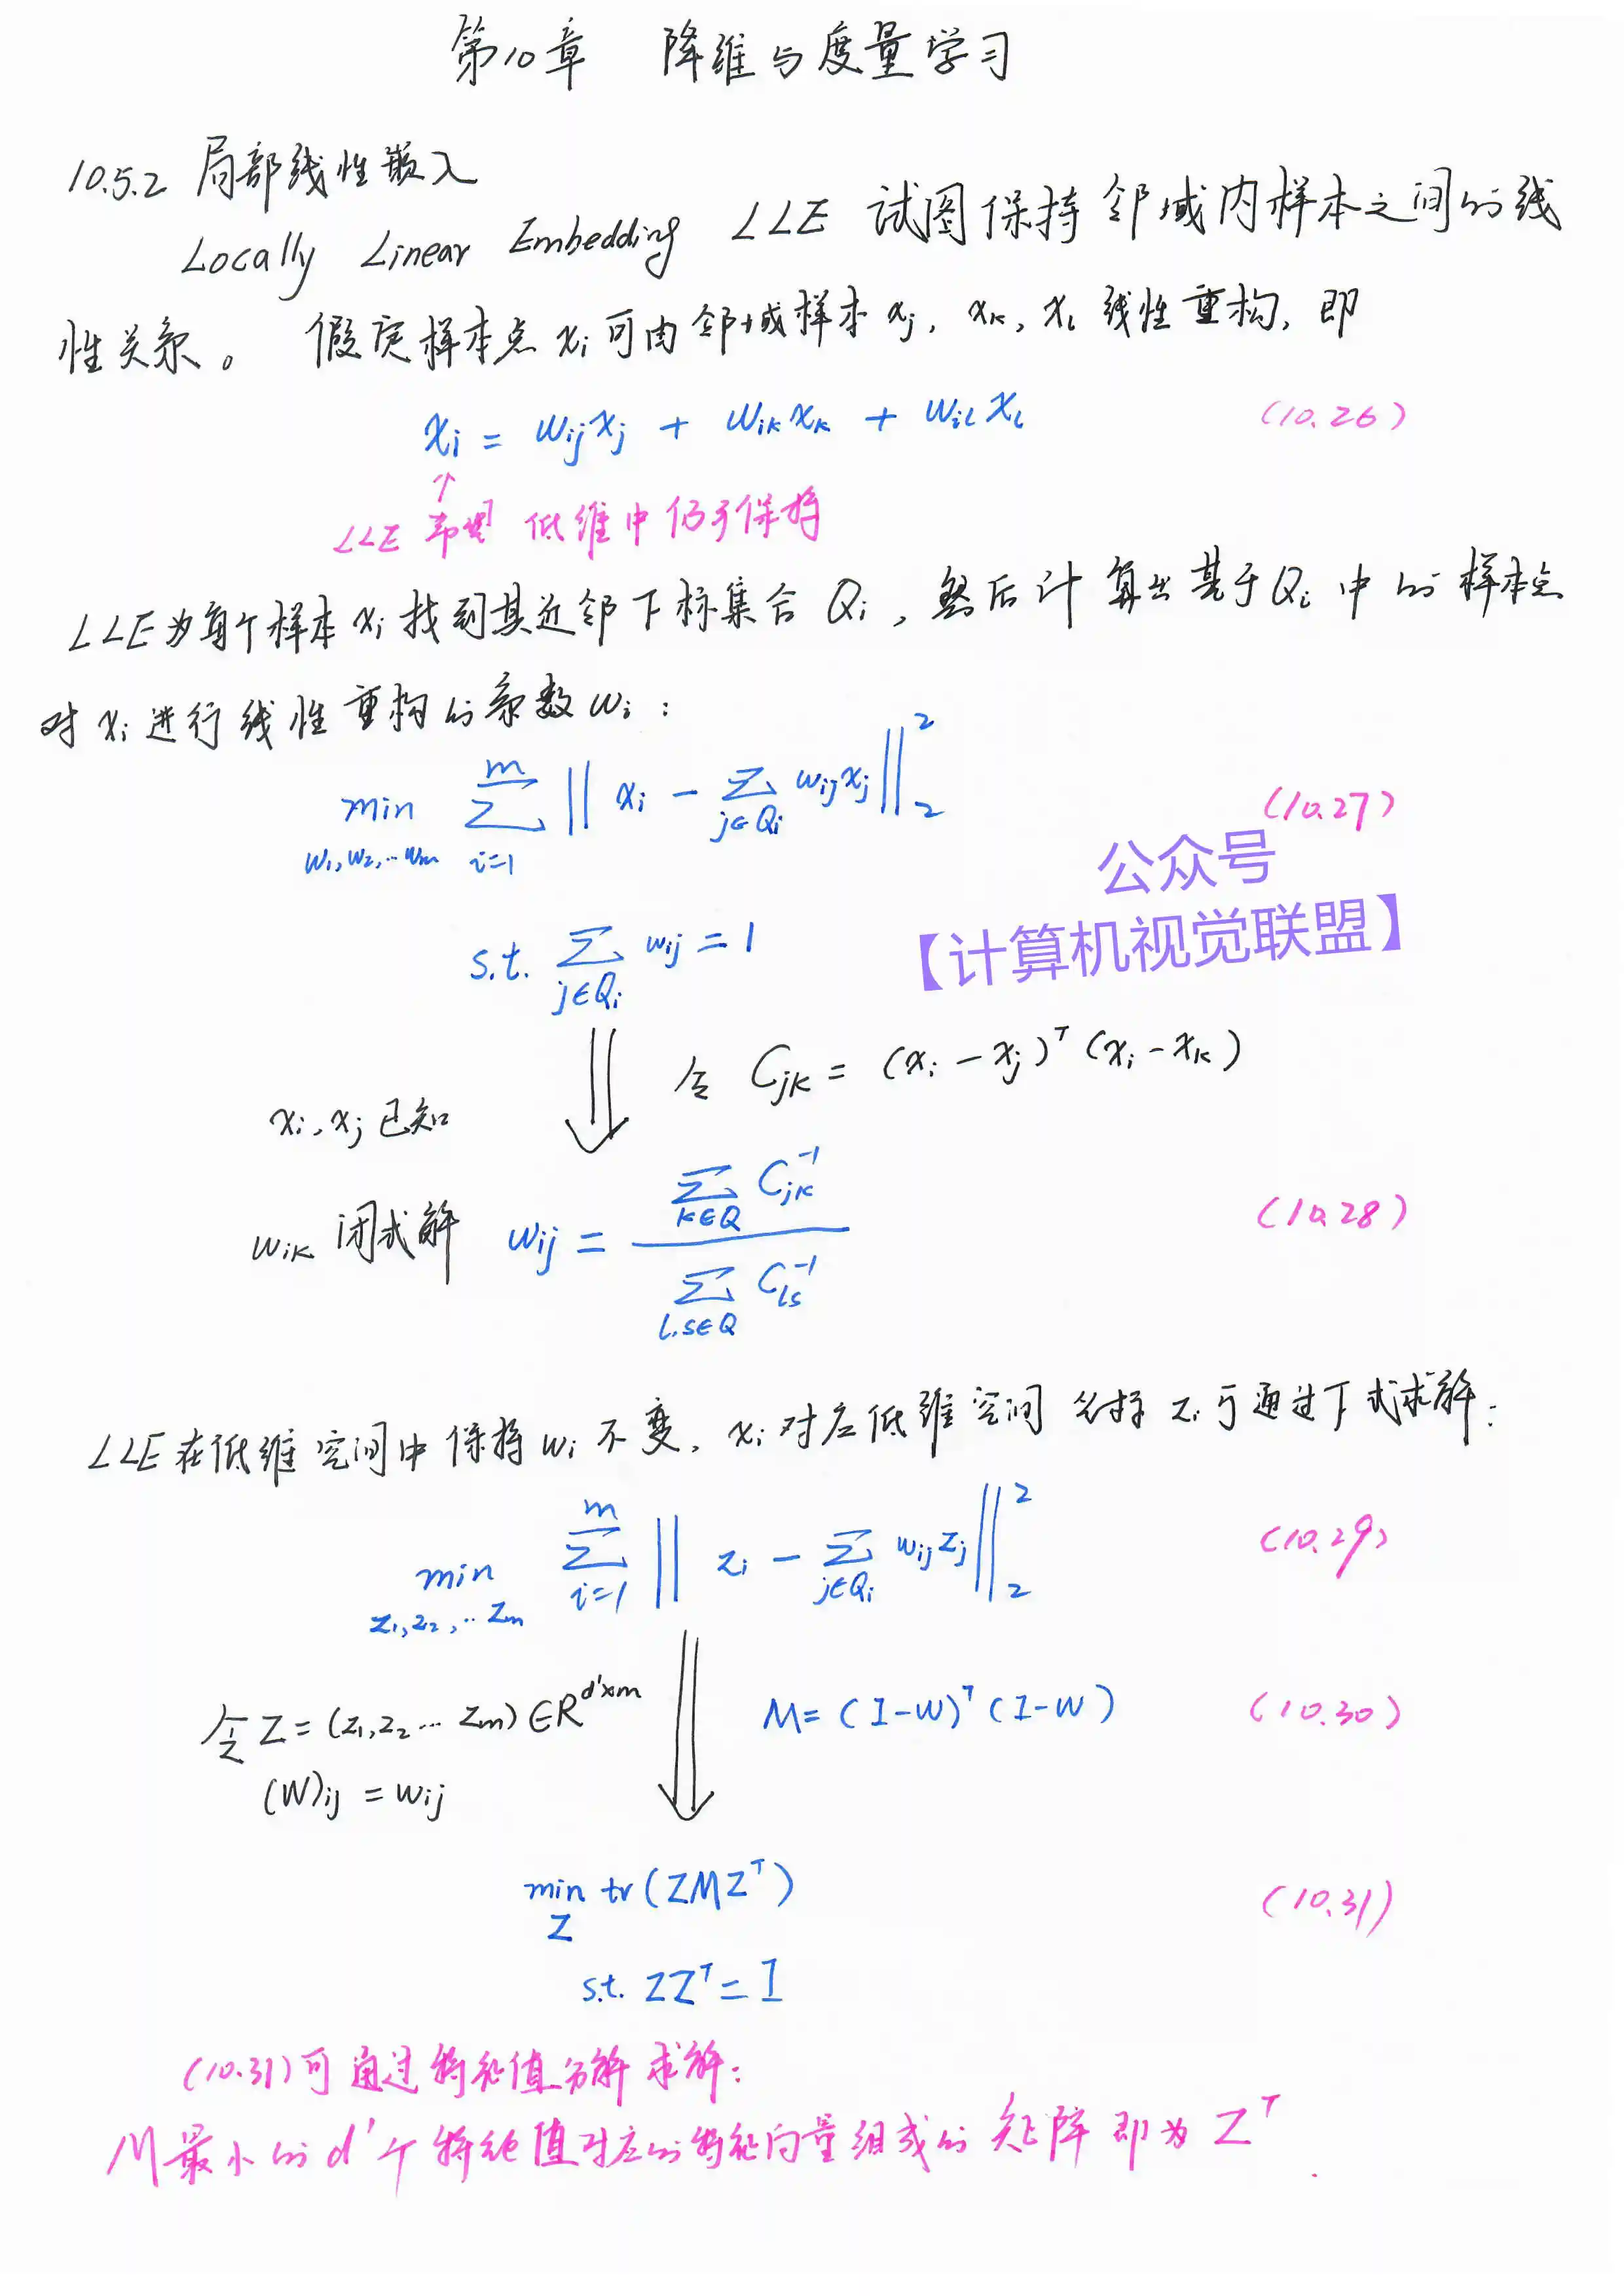 第10章 降维与度量学习
10.5.2 局部线性嵌入
Locally Linear Embedding LLE 试图保持邻域内样本之间的线
性关系。 假定样本点 xᵢ 可由邻域样本 xⱼ, xₖ, xₗ 线性重构, 即
xᵢ = wᵢⱼxⱼ + wᵢₖxₖ + wᵢₗxₗ (10.26)
↑
LLE 希望 低维中仍予保持
LLE为每个样本 xᵢ 找到其近邻下标集合 Qᵢ, 然后计算出基于Qᵢ中的样本点
对 xᵢ 进行线性重构的系数 wᵢ:
min_{w₁,w₂,..wₘ} ∑_{i=1}^{m} ‖ xᵢ - ∑_{j∈Qᵢ} wᵢⱼxⱼ ‖₂² (10.27)
公众号
【计算机视觉联盟】
s.t. ∑_{j∈Qᵢ} wᵢⱼ = 1
令 Cⱼₖ = (xᵢ - xⱼ)ᵀ (xᵢ - xₖ)
xᵢ, xⱼ 已知
wᵢₖ 闭式解 wᵢⱼ = ∑_{k∈Q} Cⱼₖ⁻¹ / ∑_{l,s∈Q} Cₗₛ⁻¹ (10.28)
LLE在低维空间中保持 wᵢ 不变, xᵢ 对应低维空间坐标 zᵢ 可通过下式求解:
min_{z₁,z₂,..zₘ} ∑_{i=1}^{m} ‖ zᵢ - ∑_{j∈Qᵢ} wᵢⱼzⱼ ‖₂² (10.29)
令 Z = (z₁,z₂...zₘ) ∈R^{d'×m} M = (I-W)ᵀ(I-W) (10.30)
(W)ᵢⱼ = wᵢⱼ
min_Z tr(ZMZᵀ) (10.31)
s.t. ZZᵀ = I
(10.31)可通过特征值分解求解:
M最小的d'个特征值对应的特征向量组成的矩阵即为Zᵀ.